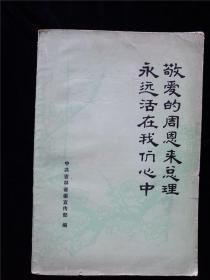 敬爱的周恩来总理
永远活在我们心中
中共吉林省委宣传部 编